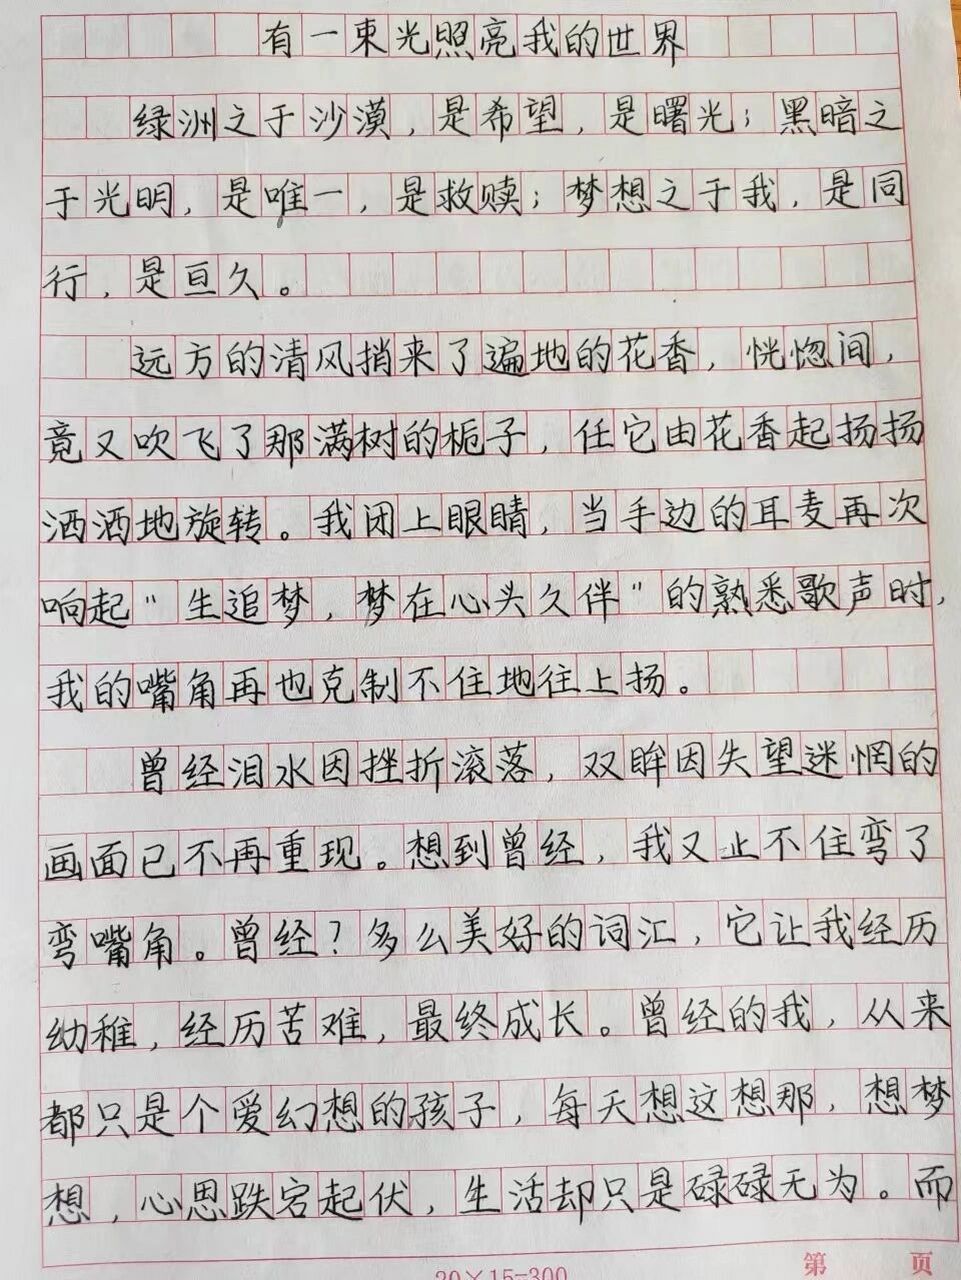 有一束光照亮我的世界
绿洲之于沙漠，是希望，是曙光；黑暗之
于光明，是唯一，是救赎；梦想之于我，是同
行，是亘久。
远方的清风捎来了遍地的花香，恍惚间，
竟又吹飞了那满树的栀子，任它由花香起扬扬
洒洒地旋转。我闭上眼睛，当手边的耳麦再次
响起“生追梦，梦在心头久伴”的熟悉歌声时，
我的嘴角再也克制不住地往上扬。
曾经泪水因挫折滚落，双眸因失望迷惘的
画面已不再重现。想到曾经，我又止不住弯了
弯嘴角。曾经？多么美好的词汇，它让我经历
幼稚，经历苦难，最终成长。曾经的我，从来
都只是个爱幻想的孩子，每天想这想那，想梦
想，心思跌宕起伏，生活却只是碌碌无为。而
20×15=300
第 页